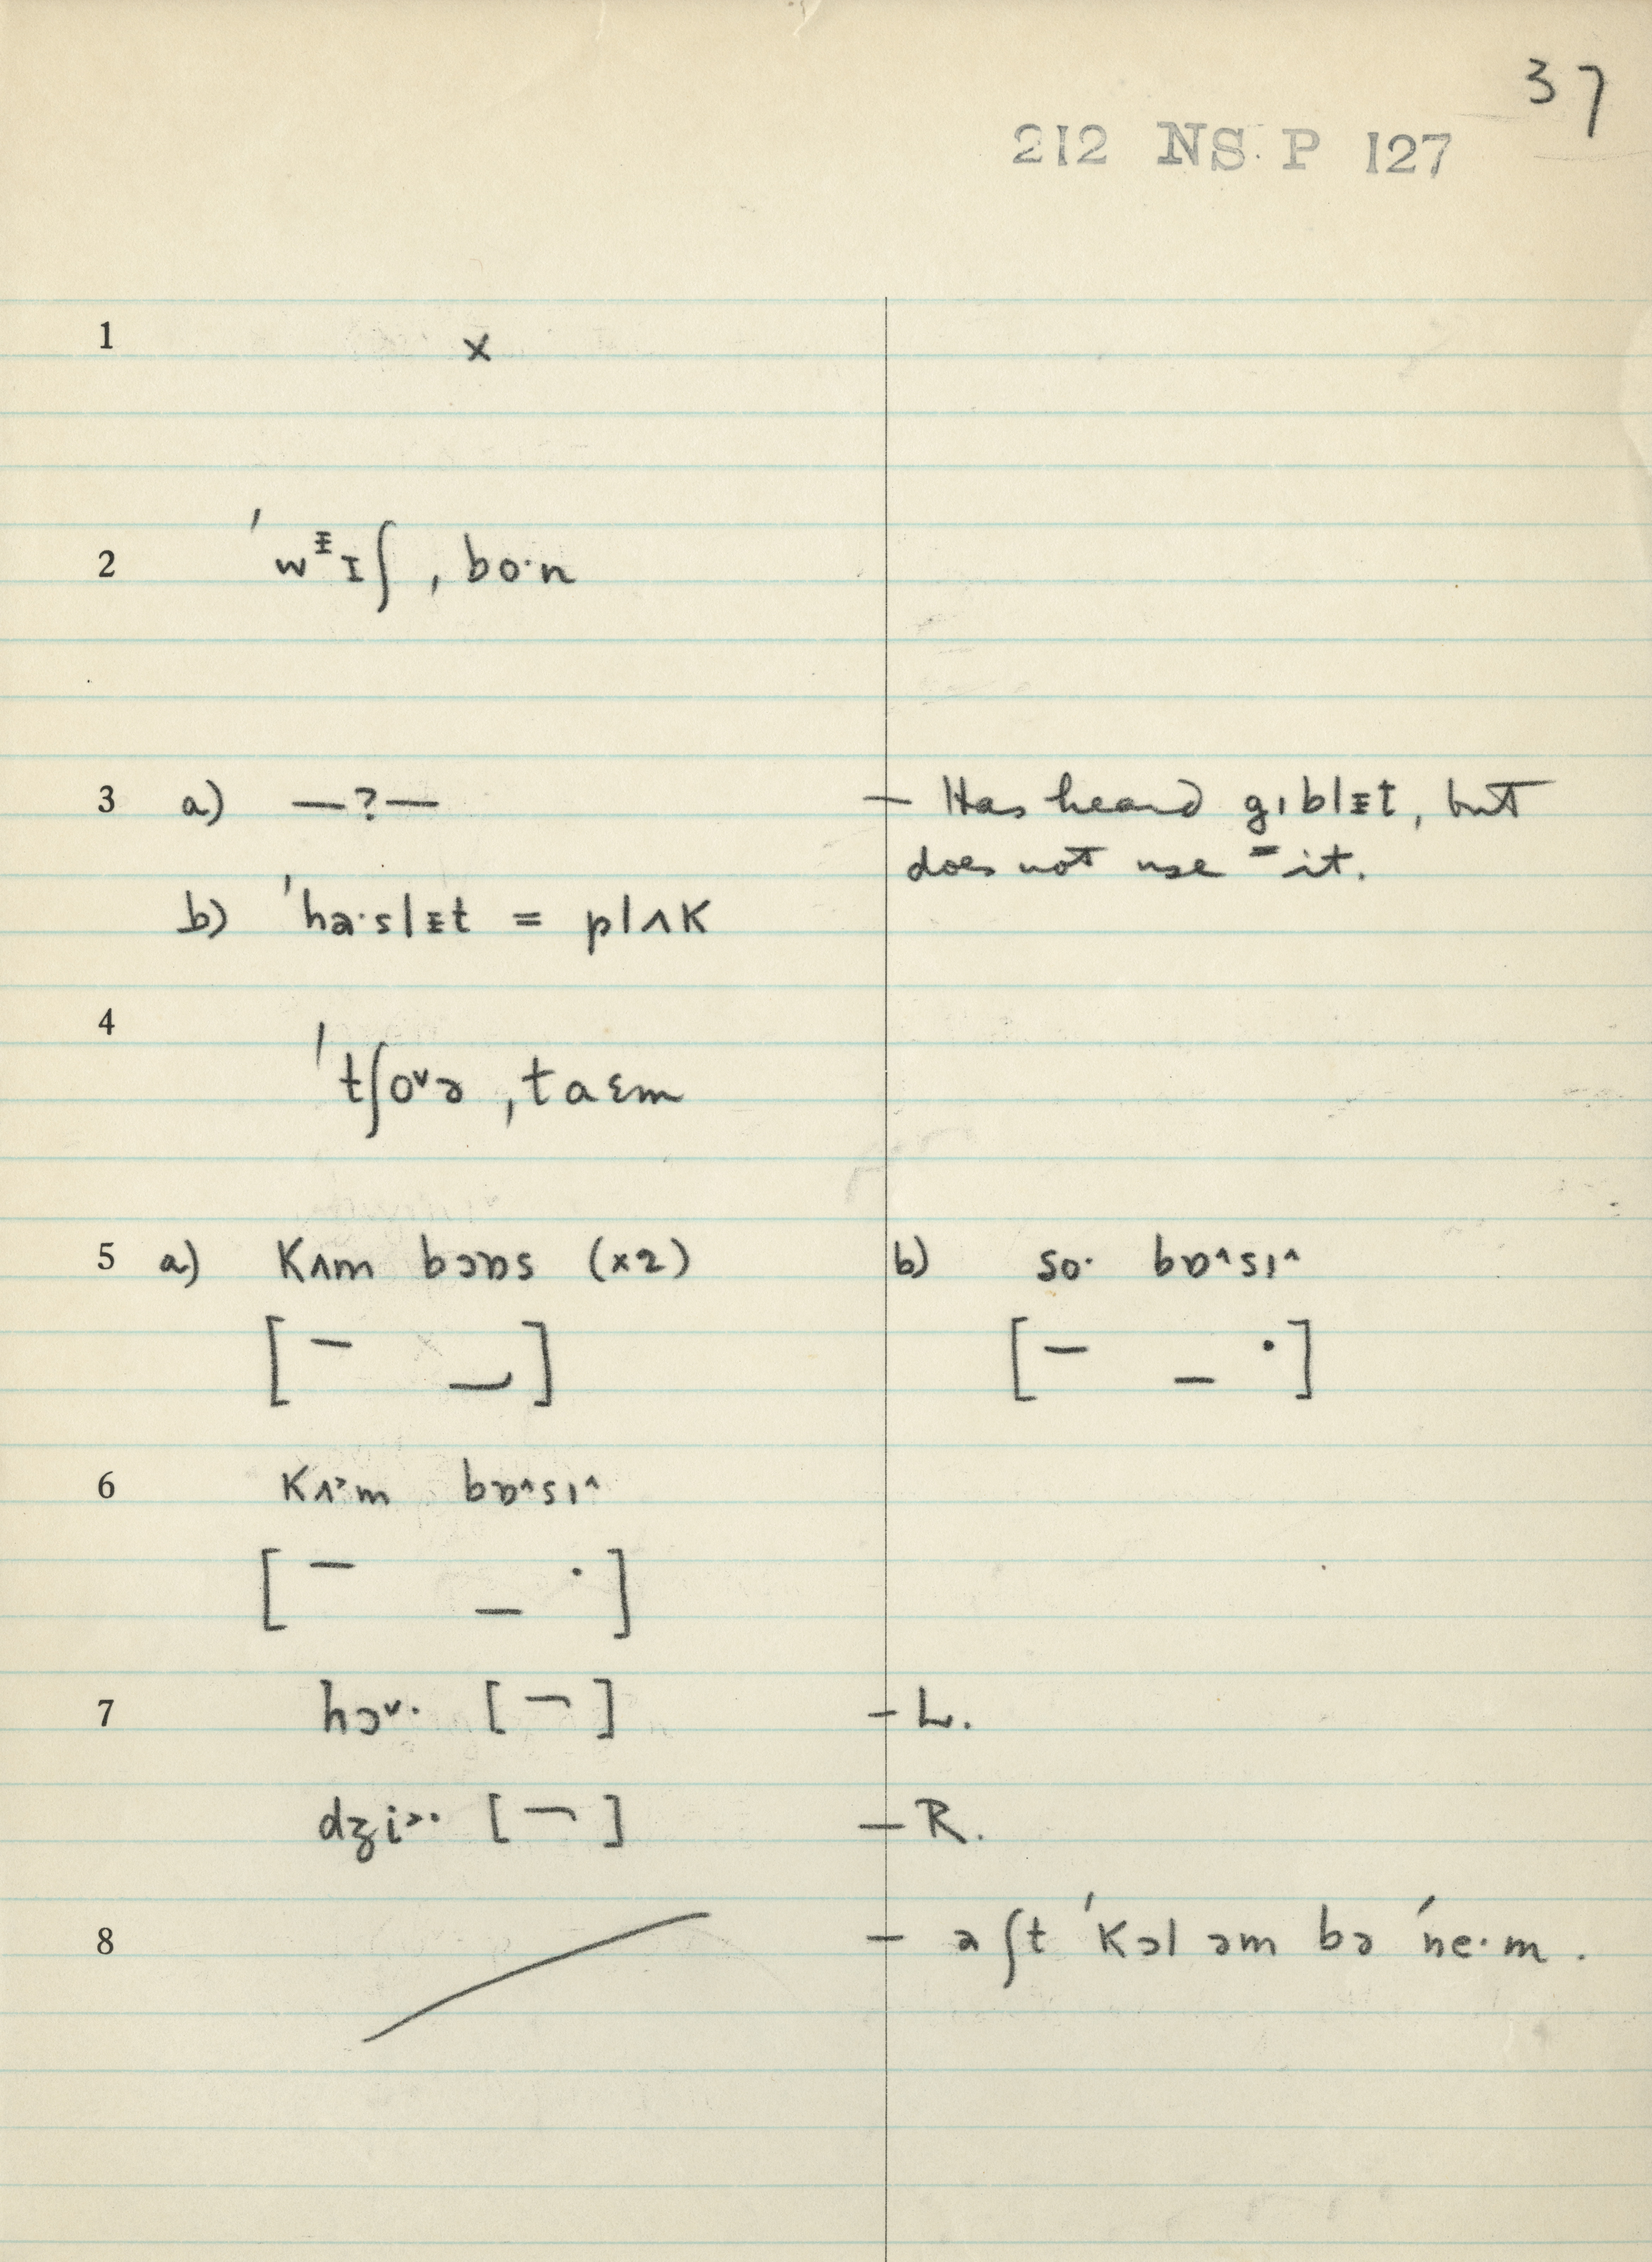 37
212 NS P 127
1 x
2 ˈwᵻɪʃ ˌbo·n
3 a) —?— — Has heard gɪblᵻt, but
does not use it.
b) ˈha·slᵻt = plʌk
4 ˈtʃo˅ə ˌtaɛm
5 a) kʌm bɔɒs (x2) b) so· bɒ˄sɪ˄
[ – _ ] [ – _ · ]
6 kʌ˃m bɒ˄sɪ˄
[ – _ · ]
7 hɔ˅· [ ¬ ] – L.
dʒi˃· [ ¬ ] – R.
8 – aʃt ˈkɔl əm bə ˈne·m.